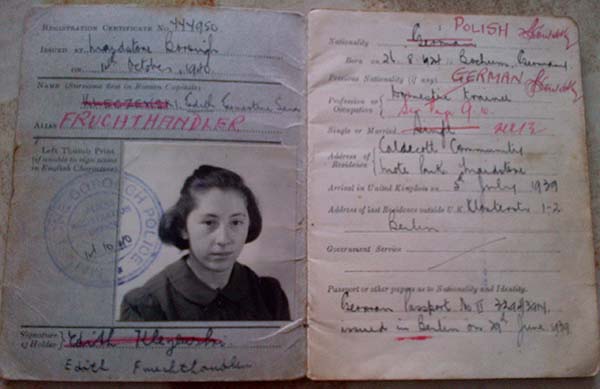 REGISTRATION CERTIFICATE No. 444950
ISSUED AT Maidstone Borough
ON 1st October, 1940
NAME (Surname first in Roman Capitals)
Edith Ernestine Sara
ALIAS FRUCHTHANDLER
Left Thumb Print
(if unable to sign name
in English Characters).
BOROUGH POLICE
1st 10 40
Signature
of Holder
Edith
Edith Fruchthandler
POLISH
Nationality German
Born on 26.8.1924 in Bochum, Germany
Previous Nationality (if any) GERMAN
Profession or
Occupation
Domestic trainee
See Page 9
Single or Married Single
Address of
Residence
Caldecott Community
Mote Park Maidstone
Arrival in United Kingdom on 5th July 1939
Address of last Residence outside U.K. 1-2
Berlin
Government Service
Passport or other papers as to Nationality and Identity.
German Passport No II
issued in Berlin on 29th June 1939